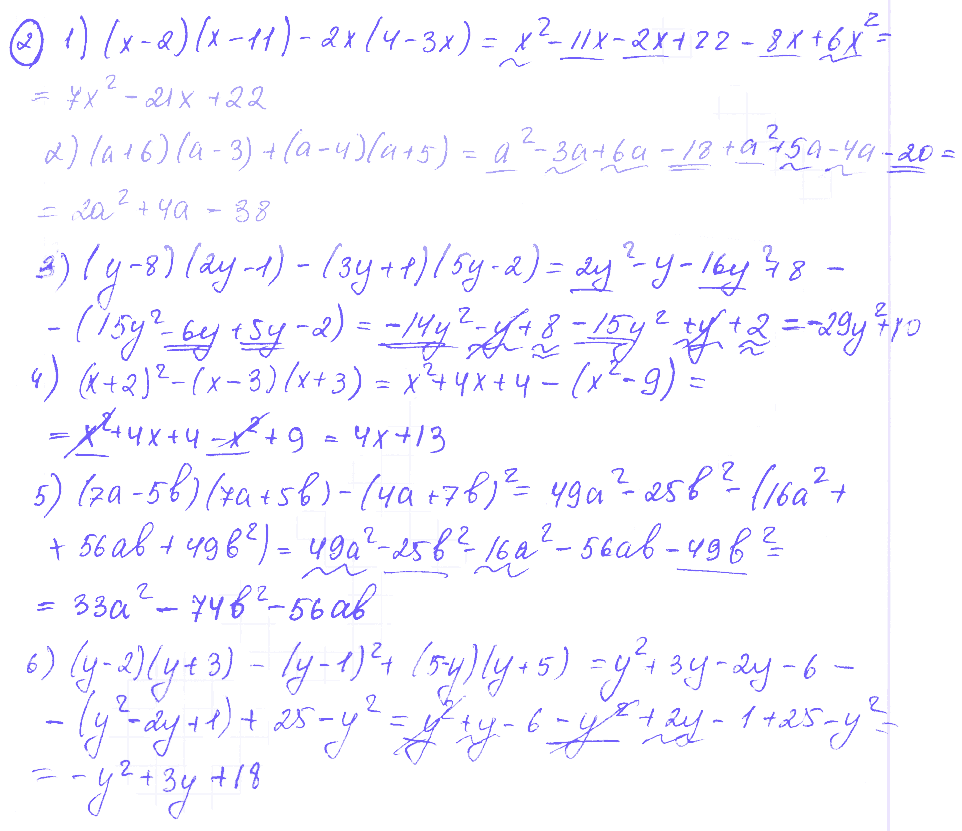 ② 1) (x-2)(x-11) - 2x(4-3x) = x² - 11x - 2x + 22 - 8x + 6x² =
= 7x² - 21x + 22
2) (a+6)(a-3) + (a-4)(a+5) = a² - 3a + 6a - 18 + a² + 5a - 4a - 20 =
= 2a² + 4a - 38
3) (y-8)(2y-1) - (3y+1)(5y-2) = 2y² - y - 16y² + 8 -
- (15y² - 6y + 5y - 2) = -14y² - y + 8 - 15y² + y + 2 = -29y² + 10
4) (x+2)² - (x-3)(x+3) = x² + 4x + 4 - (x² - 9) =
= x² + 4x + 4 - x² + 9 = 4x + 13
5) (7a-5b)(7a+5b) - (4a+7b)² = 49a² - 25b² - (16a² +
+ 56ab + 49b²) = 49a² - 25b² - 16a² - 56ab - 49b² =
= 33a² - 74b² - 56ab
6) (y-2)(y+3) - (y-1)² + (5-y)(y+5) = y² + 3y - 2y - 6 -
- (y² - 2y + 1) + 25 - y² = y² + y - 6 - y² + 2y - 1 + 25 - y² =
= -y² + 3y + 18